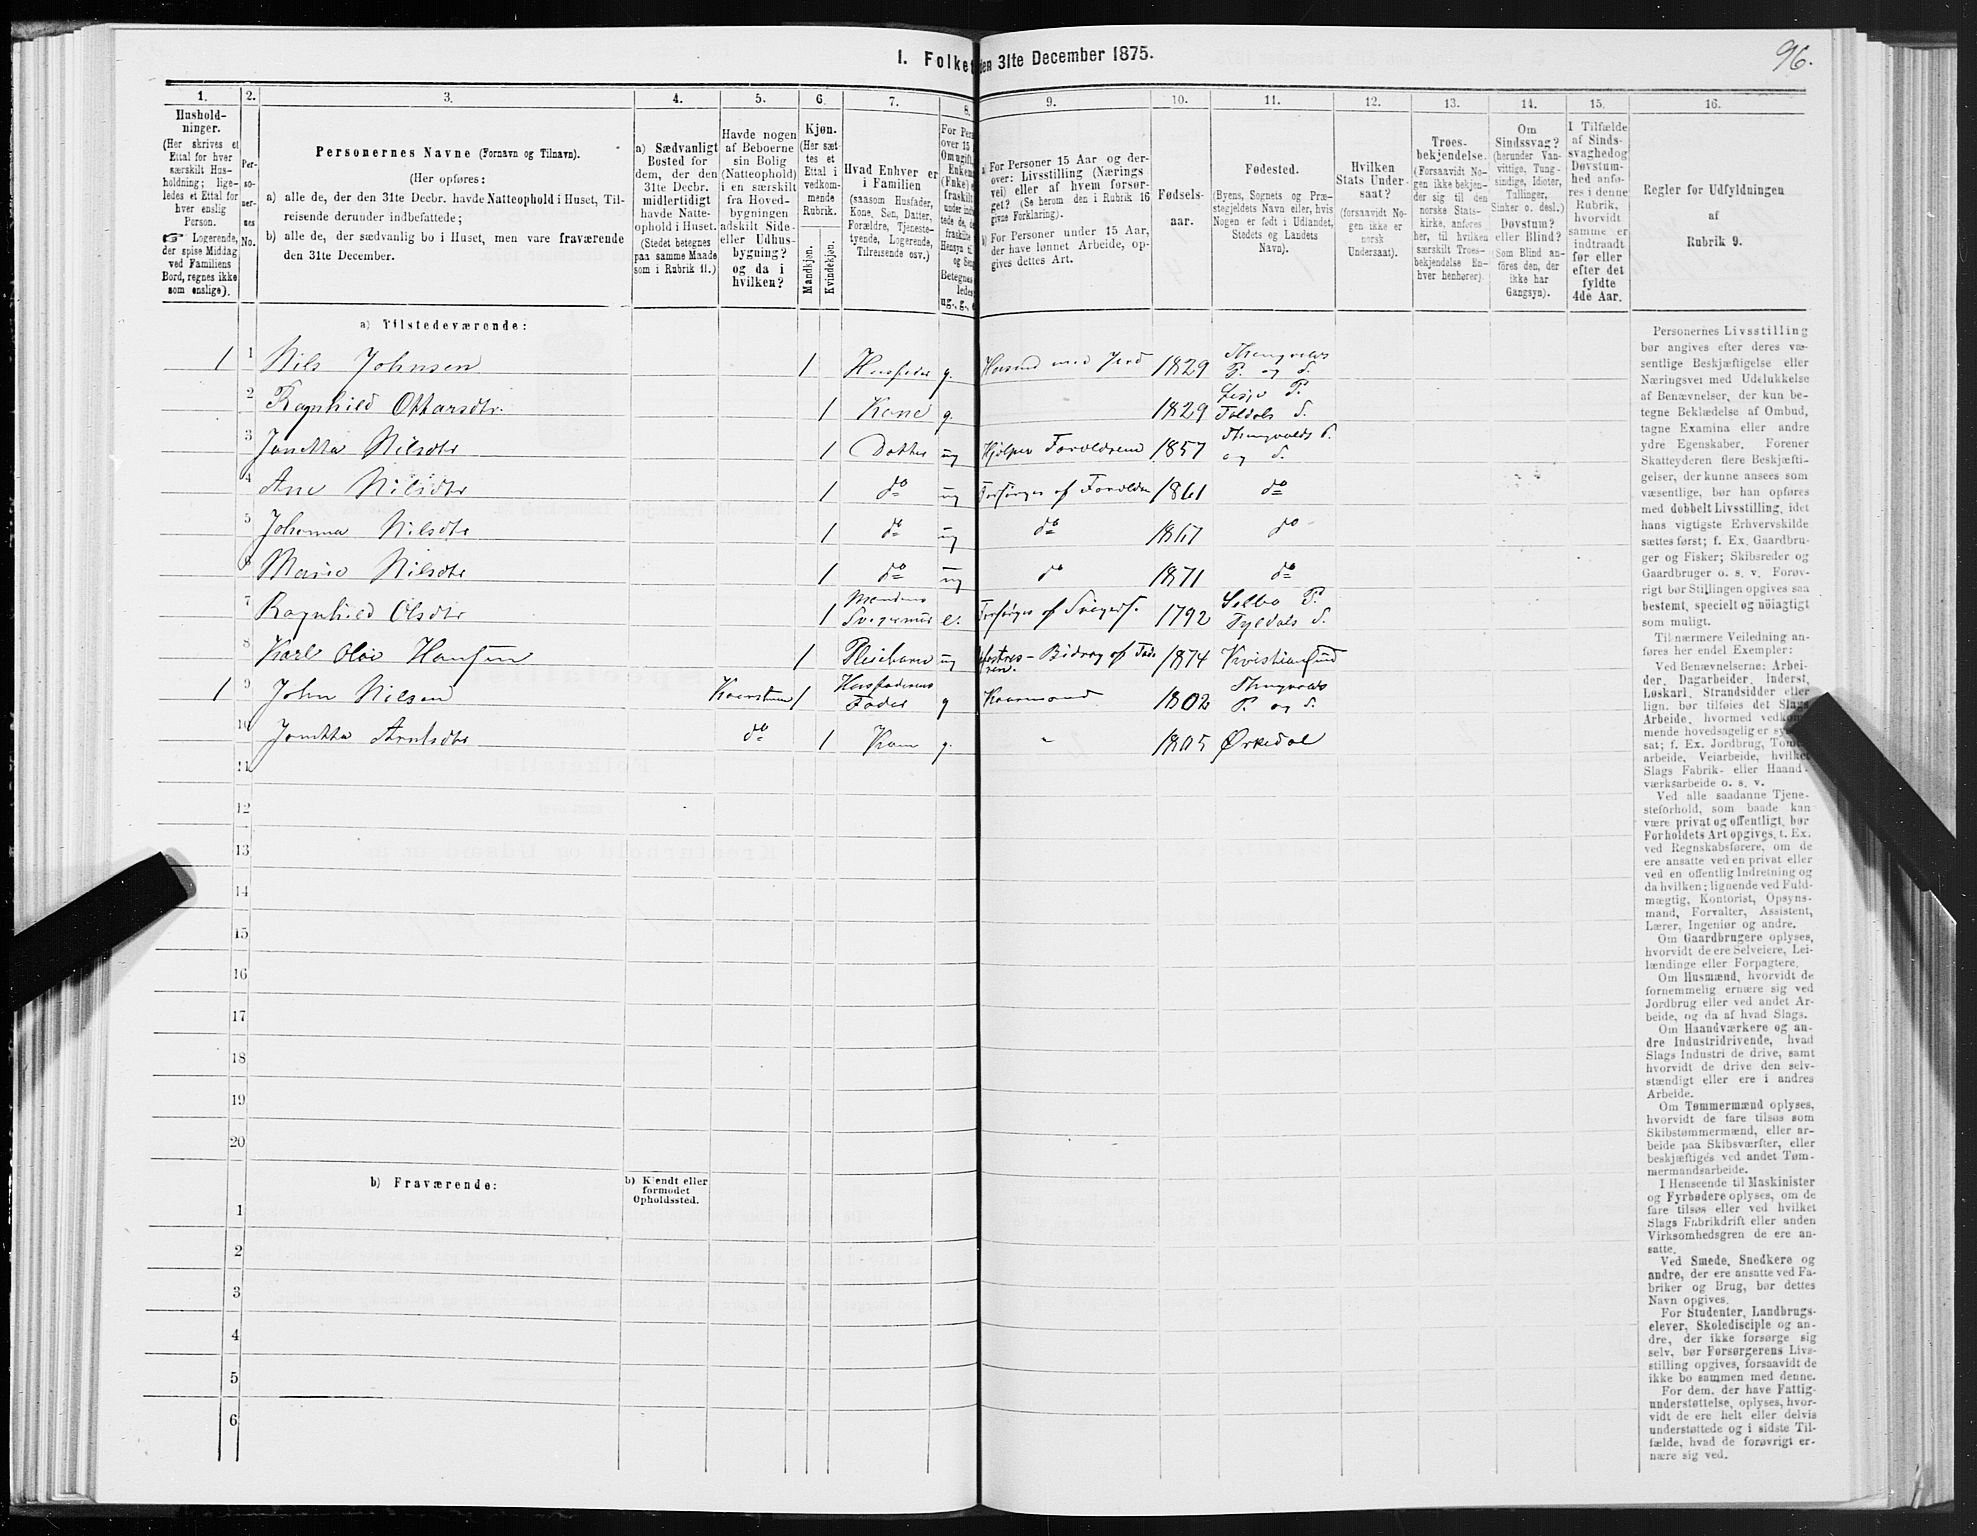 96.
I. Folket
den 31te December 1875.
1. 2. 3. 4. 5. 6. 7. 8. 9. 10. 11. 12. 13. 14. 15. 16.
Hushold-
ninger.
(Her skrives et
Ettal for hver
særskilt Hus-
holdning; lige-
ledes et Ettal for
hver enslig
Person.
☞ Logerende,
der spise Middag
ved Familiens
Bord, regnes ikke
som enslige).
Per-
so-
ner-
nes
No.
Personernes Navne (Fornavn og Tilnavn).
(Her opføres:
a) alle de, der den 31te Decbr. havde Natteophold i Huset, Til-
reisende derunder indbefattede;
b) alle de, der sædvanlig bo i Huset, men vare fraværende
den 31te December.
a) Sædvanligt
Bosted for
dem, der den
31te Decbr.
midlertidigt
havde Natte-
ophold i Huset.
(Stedet betegnes
paa samme Maade
som i Rubrik 11.)
Havde nogen
af Beboerne
sin Bolig
(Natteophold)
i en særskilt
fra Hoved-
bygningen
adskilt Side-
eller Udhus-
bygning?
og da i
hvilken?
Kjøn.
(Her sæt-
tes et
Ettal i
vedkom-
mende
Rubrik.
Mandkjøn.
Kvindekjøn.
Hvad Enhver er
i Familien
(saasom Husfader,
Kone, Søn, Datter,
Forældre, Tjeneste-
tyende, Logerende,
Tilreisende osv.)
For Per
over 15
Om ugift,
Enkem
(Enke)
fraskilt
under ind
tede de,
fraskilte
Hensyn t
og Sen
Betegnes
ledes
ug., g.,
a) For Personer 15 Aar og der-
over: Livsstilling (Nærings
vei) eller af hvem forsør-
get? (Se herom den i Rubrik 16
givne Forklaring).
b) For Personer under 15 Aar,
der have lønnet Arbeide, op-
gives dettes Art.
Fødsels-
aar.
Fødested.
(Byens, Sognets og Præ-
stegjeldets Navn eller, hvis
Nogen er født i Udlandet,
Stedets og Landets
Navn).
Hvilken
Stats Under-
saat?
(forsaavidt No-
gen ikke er
norsk
Undersaat).
Troes-
bekjendelse.
(Forsaavidt No-
gen ikke bekjen-
der sig til den
norske Stats-
kirke, anføres
her, til hvilken
særskilt Troes-
bekjendelse En-
hver henhører).
Om
Sindssvag?
(herunder Van-
vittige, Tung-
sindige, Idioter,
Tullinger,
Sinker o. desl.)
Døvstum?
eller Blind?
(Som Blind an-
føres den, der
ikke har
Gangsyn).
I Tilfælde
af Sinds-
svaghed og
Døvstum-
hed anfø-
res i denne
Rubrik,
hvorvidt
samme er
indtraadt
før eller
efter det
fyldte
4de Aar.
Regler for Udfyldningen
af
Rubrik 9.
a) Tilstedeværende:
1 1 Nils Johnsen 1 Husfader g. Husmd med Jord 1829 P. og S.
2 Ragnhild Ottarsdtr. 1 Kone g. 1829 Lesje P. Foldals S.
3 Jonetta Nilsdtr 1 Datter ug Hjælper Forældrene 1857 og S.
4 Ane Nilsdtr 1 do ug Forsørges af Forældre 1861 do
5 Johanna Nilsdtr 1 do ug do 1867 do
6 Marie Nilsdtr 1 do ug do 1871 do
7 Ragnhild Olsdtr 1 Mandens Svigermor e. Forsørges af Svigers. 1792 Selbo P. Tydals S.
8 Karl Olai Hansen 1 Pleiebarn ug Bidrag af Fade ren. 1874 Kristiansund
1 9 John Nilsen Kaarstuen 1 Husfaderens Fader g Kaarmand 1802 P. og S.
10 Jonetta Arntsdtr do 1 Kone g. " 1805 Ørkedal
11
12
13
14
15
16
17
18
19
20
b) Fraværende:
b) Kjendt eller
formodet
Opholdssted.
1
2
3
4
5
6
Personernes Livsstilling
bør angives efter deres væ-
sentlige Beskjæftigelse eller
Næringsvei med Udelukkelse
af Benævnelser, der kun be-
tegne Beklædelse af Ombud,
tagne Examina eller andre
ydre Egenskaber. Forener
Skatteyderen flere Beskjæfti-
gelser, der kunne ansees som
væsentlige, bør han opføres
med dobbelt Livsstilling, idet
hans vigtigste Erhvervskilde
sættes først; f. Ex. Gaardbru-
ger og Fisker; Skibsreder og
Gaardbruger o. s. v. Forøv-
rigt bør Stillingen opgives saa
bestemt, specielt og nøiagtigt
som muligt.
Til nærmere Veiledning an-
føres her endel Exempler:
Ved Benævnelserne: Arbei-
der, Dagarbeider, Inderst,
Løskarl, Strandsidder eller
lign. bør tilføies det Slags
Arbeide, hvormed vedkom-
mende hovedsagelig er sys
sat; f. Ex. Jordbrug, Tomt
arbeide, Veiarbeide, hvilket
Slags Fabrik- eller Haand-
værksarbeide o. s. v.
Ved alle saadanne Tjene-
steforhold, som baade kan
være privat og offentligt, bør
Forholdets Art opgives, t. Ex.
ved Regnskabsførere, om de
ere ansatte ved en privat eller
ved en offentlig Indretning og
da hvilken; lignende ved Fuld-
mægtig, Kontorist, Opsyns-
mand, Forvalter, Assistent,
Lærer, Ingeniør og andre.
Om Gaardbrugere oplyses,
hvorvidt de ere Selveiere, Lei-
lændinge eller Forpagtere.
Om Husmænd, hvorvidt de
fornemmelig ernære sig ved
Jordbrug eller ved andet Ar-
beide, og da af hvad Slags.
Om Haandværkere og an-
dre Industridrivende, hvad
Slags Industri de drive, samt
hvorvidt de drive den selv-
stændigt eller ere i andres
Arbeide.
Om Tømmermænd oplyses,
hvorvidt de fare tilsøs som
Skibstømmermænd, eller ar-
beide paa Skibsværfter, eller
beskjæftiges ved andet Tøm-
mermandsarbeide.
I Henseende til Maskinister
og Fyrbødere oplyses, om de
fare tilsøs eller ved hvilket
Slags Fabrikdrift eller anden
Virksomhedsgren de ere an-
satte.
Ved Smede, Snedkere og
andre, der ere ansatte ved Fa-
briker og Brug, bør dettes
Navn opgives.
For Studenter, Landbrugs-
elever, Skoledisciple og an-
dre, der ikke forsørge sig
selv, bør Forsørgerens Livs-
stilling opgives, forsaavidt de
ikke bo sammen med denne.
For dem, der have Fattig-
understøttelse, oplyses, hvor-
vidt de ere helt eller delvis
understøttede og i sidste Til-
fælde, hvad de forøvrigt er-
nære sig ved.